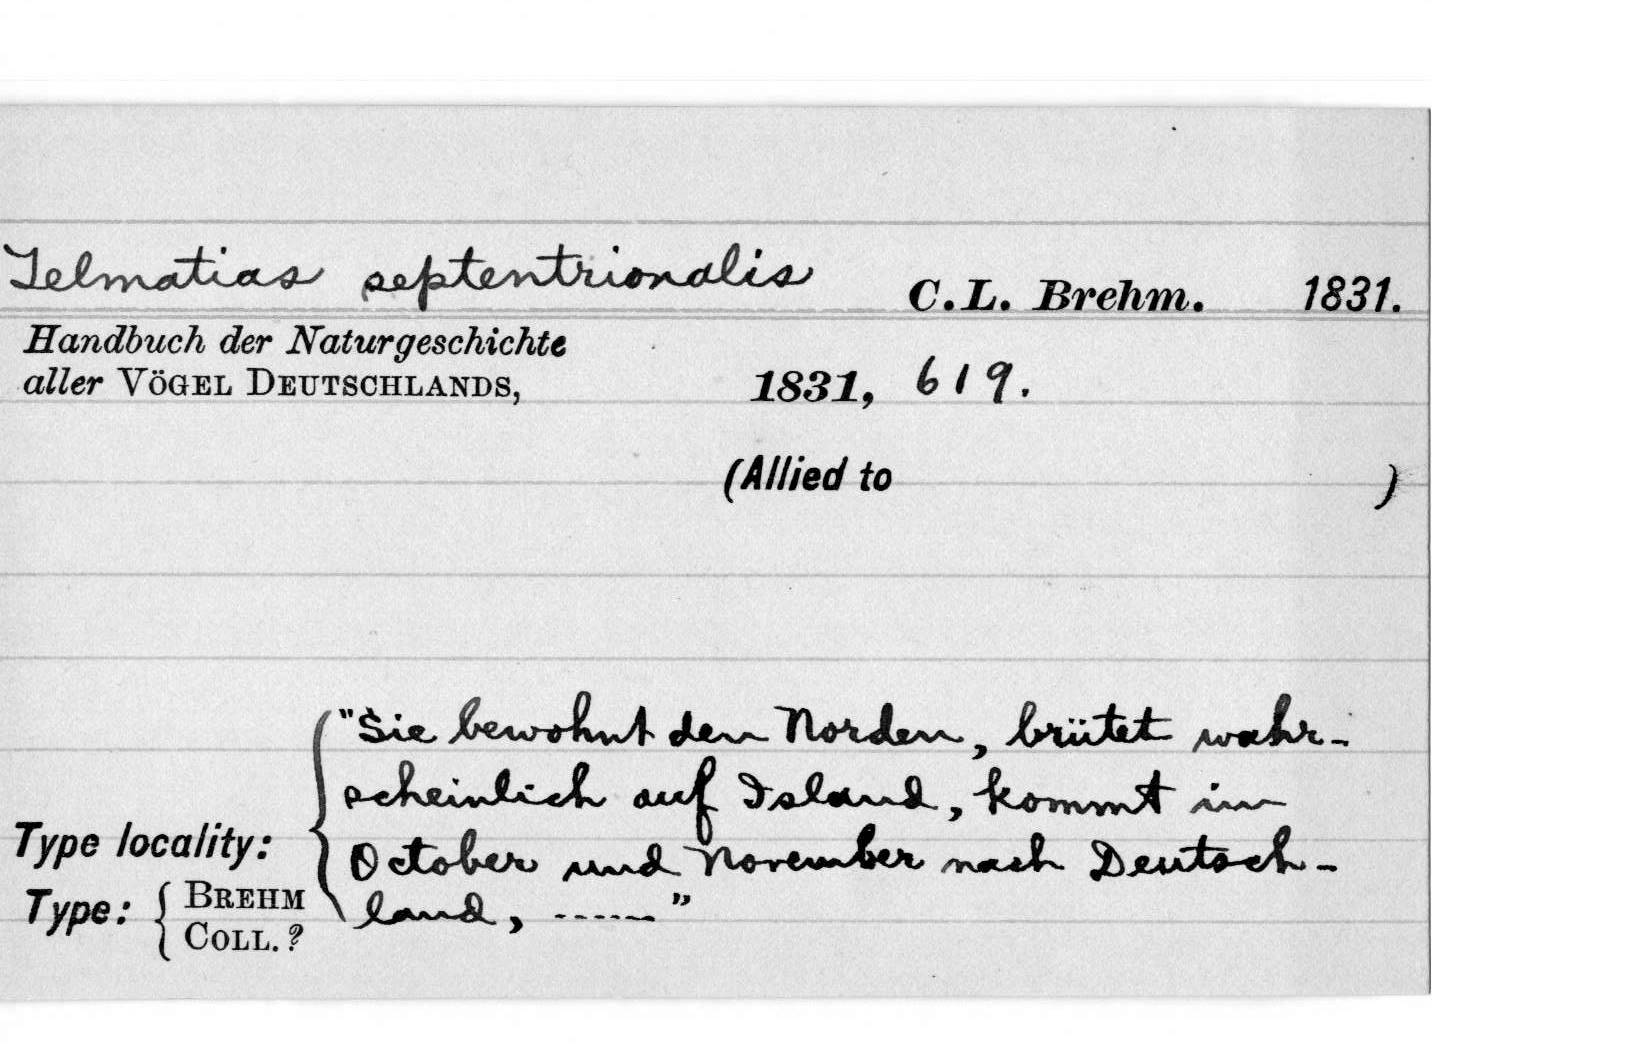 Telmatias septentrionalis C.L. Brehm. 1831.
Handbuch der Naturgeschichte
aller VÖGEL DEUTSCHLANDS, 1831, 619.
(Allied to )
"Sie bewohnt den Norden, brütet wahr-
scheinlich auf Island, kommt im
October und November nach Deutsch-
land, ------"
Type locality:
Type: { BREHM
COLL. ?